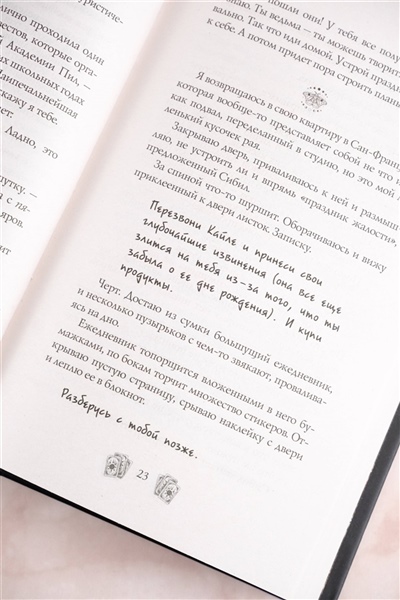 уристиче-
лично проходила один
естов, которые орга-
й Академии Пил, —
х школьных годах
Наипечальнейшая
скажу я тебе.
ет.
Ладно, это
шутку. —
а с пя-
яров.
ит
пошли они! У тебя все полу
знаю. Ты ведьма — ты можешь творит
вально. Так что иди домой. Устрой праздн
к себе. А потом придет пора строить планы
Я возвращаюсь в свою квартиру в Сан-Фран
которая вообще-то представляет собой не что и
как подвал, переделанный в студию, но это мой м
ленький кусочек рая.
Закрываю дверь, приваливаюсь к ней и размыш
ляю, не устроить ли и впрямь «праздник жалости»,
предложенный Сибил.
За спиной что-то шуршит. Оборачиваюсь и вижу
приклеенный к двери листок. Записку.
Перезвони Кайле и принеси свои
глубочайшие извинения (она все еще
злится на тебя из-за того, что ты
забыла о ее дне рождения). И купи
продукты.
Черт. Достаю из сумки большущий ежедневник,
и несколько пузырьков с чем-то звякают, провалива-
ясь на дно.
Ежедневник топорщится вложенными в него бу-
мажками, по бокам торчит множество стикеров. От-
крываю пустую страницу, срываю наклейку с двери
и леплю ее в блокнот.
Разберусь с тобой позже.
23